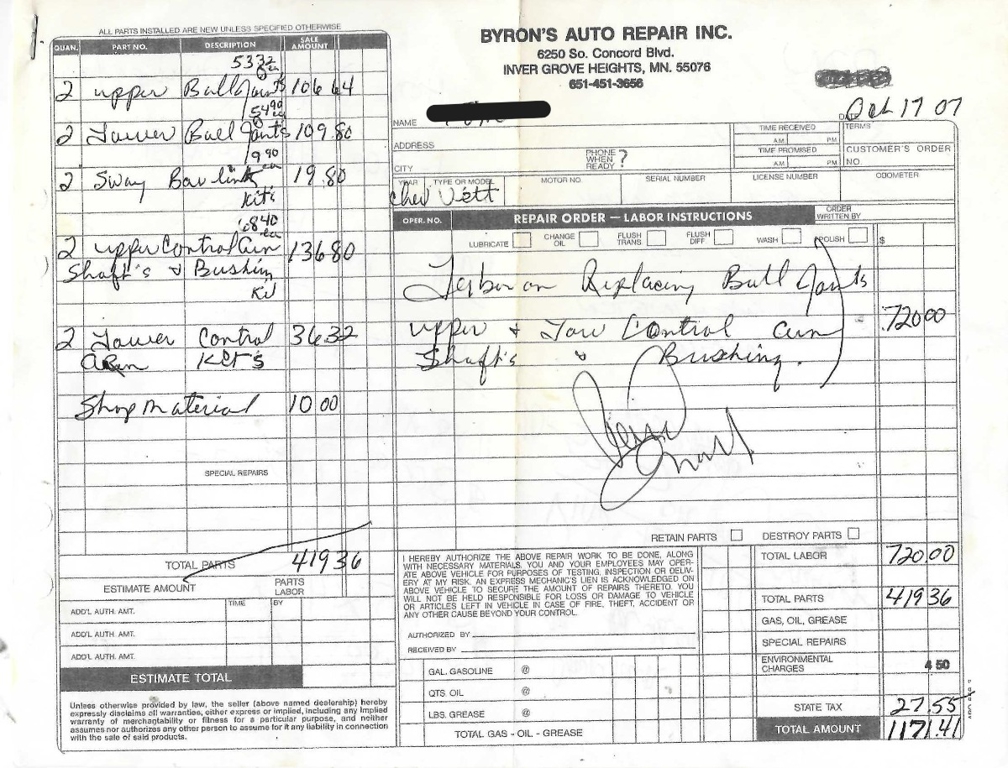 ALL PARTS INSTALLED ARE NEW UNLESS SPECIFIED OTHERWISE
QUAN. PART NO. DESCRIPTION SALE AMOUNT
53 32 ea
2 upper Ball Joints 106 64
54 90 ea
2 Lower Ball Joints 109.80
9 90 ea
2 Sway Bar link 19.80
Kit's
68 40 ea
2 upper Control Arm 136 80
Shaft's & Bushing
Kit
2 Lower Control 36.32
Arm Kit's
Shop material 10 00
SPECIAL REPAIRS
TOTAL PARTS 419 36
ESTIMATE AMOUNT PARTS LABOR
TIME BY
ADD'L AUTH. AMT.
ADD'L AUTH. AMT.
ADD'L AUTH. AMT.
ESTIMATE TOTAL
Unless otherwise provided by law, the seller (above named dealership) hereby
expressly disclaims all warranties, either express or implied, including any implied
warranty of merchagtability or fitness for a particular purpose, and neither
assumes nor authorizes any other person to assume for it any liability in connection
with the sale of said products.
BYRON'S AUTO REPAIR INC.
6250 So. Concord Blvd.
INVER GROVE HEIGHTS, MN. 55076
651-451-3656
DATE Oct 17 07
NAME
TIME RECEIVED A.M. P.M. TERMS
ADDRESS
PHONE WHEN READY?
TIME PROMISED A.M. P.M. CUSTOMER'S ORDER NO.
CITY
YEAR TYPE OR MODEL MOTOR NO. SERIAL NUMBER LICENSE NUMBER ODOMETER
Chev Vett
OPER. NO. REPAIR ORDER — LABOR INSTRUCTIONS ORDER WRITTEN BY
LUBRICATE CHANGE OIL FLUSH TRANS FLUSH DIFF WASH POLISH $
Labor on Replacing Ball Joints
upper & Low Control Arm 720 00
Shaft's & Bushing.
RETAIN PARTS DESTROY PARTS
I HEREBY AUTHORIZE THE ABOVE REPAIR WORK TO BE DONE, ALONG
WITH NECESSARY MATERIALS. YOU AND YOUR EMPLOYEES MAY OPER-
ATE ABOVE VEHICLE FOR PURPOSES OF TESTING, INSPECTION OR DELIV-
ERY AT MY RISK. AN EXPRESS MECHANIC'S LIEN IS ACKNOWLEDGED ON
ABOVE VEHICLE TO SECURE THE AMOUNT OF REPAIRS THERETO. YOU
WILL NOT BE HELD RESPONSIBLE FOR LOSS OR DAMAGE TO VEHICLE
OR ARTICLES LEFT IN VEHICLE IN CASE OF FIRE, THEFT, ACCIDENT OR
ANY OTHER CAUSE BEYOND YOUR CONTROL.
AUTHORIZED BY
RECEIVED BY
GAL. GASOLINE @
QTS. OIL @
LBS. GREASE @
TOTAL GAS - OIL - GREASE
TOTAL LABOR 720.00
TOTAL PARTS 419 36
GAS, OIL, GREASE
SPECIAL REPAIRS
ENVIRONMENTAL CHARGES 4 50
STATE TAX 27.55
TOTAL AMOUNT 1171.41